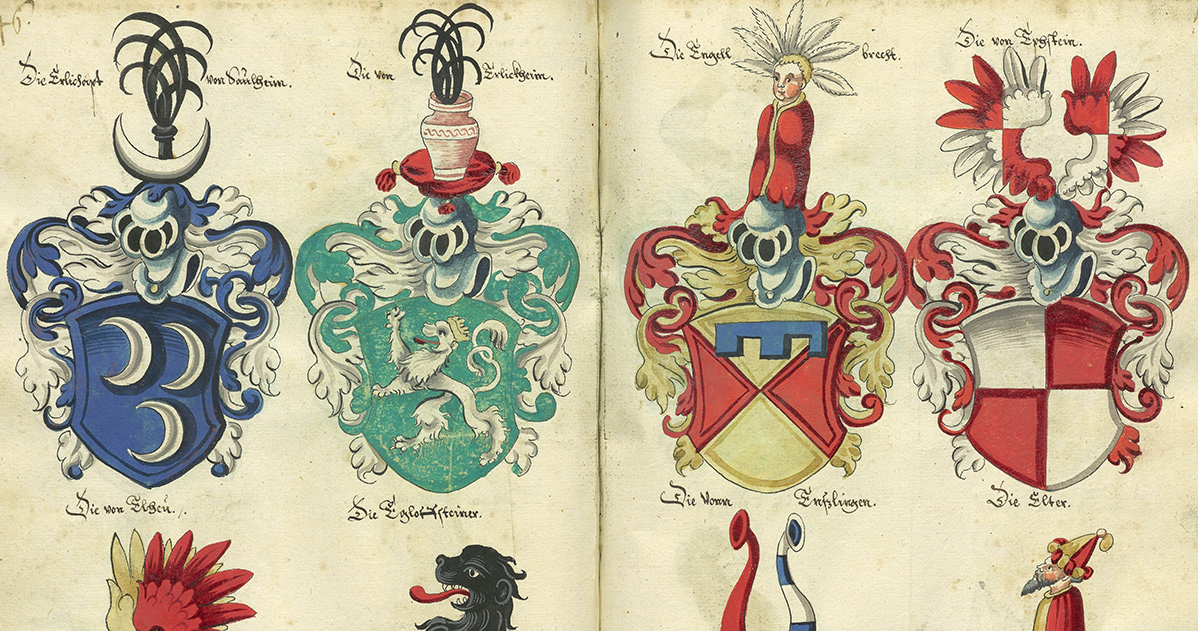 Die von Saulheim.
Die von Erlickheim.
Die Engell brecht.
Die von Epstein.
Die von
Die Eglofsteiner.
Die Vonn Enslingen.
Die Elter.